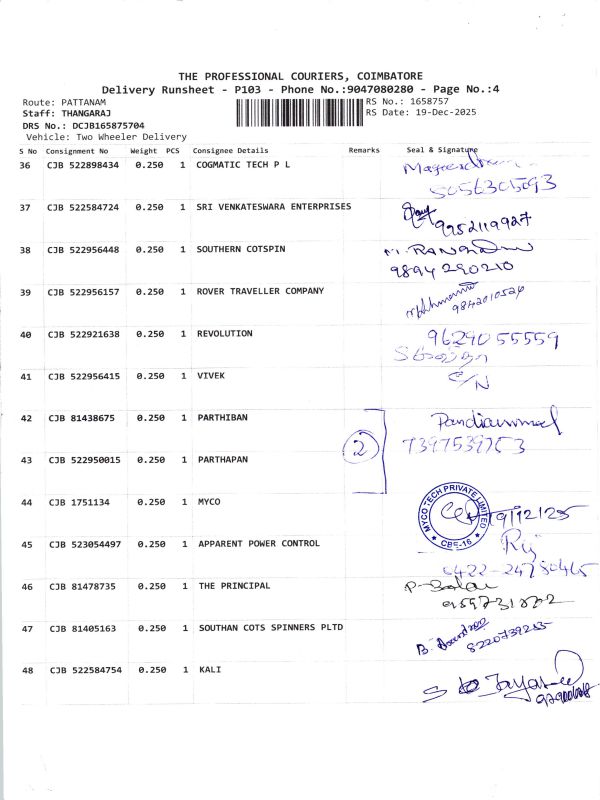 THE PROFESSIONAL COURIERS, COIMBATORE
Delivery Runsheet - P103 - Phone No.:9047080280 - Page No.:4
Route: PATTANAM
RS No.: 1658757
Staff: THANGARAJ
RS Date: 19-Dec-2025
DRS No.: DCJB165875704
Vehicle: Two Wheeler Delivery
S No Consignment No Weight PCS Consignee Details Remarks Seal & Signature
36 CJB 522898434 0.250 1 COGMATIC TECH P L
5056301593
37 CJB 522584724 0.250 1 SRI VENKATESWARA ENTERPRISES
9952119927
38 CJB 522956448 0.250 1 SOUTHERN COTSPIN
9894 290210
39 CJB 522956157 0.250 1 ROVER TRAVELLER COMPANY
9842010526
40 CJB 522921638 0.250 1 REVOLUTION 9629055559
41 CJB 522956415 0.250 1 VIVEK C/N
42 CJB 81438675 0.250 1 PARTHIBAN Pandiammal
2 7397539753
43 CJB 522950015 0.250 1 PARTHAPAN
44 CJB 1751134 0.250 1 MYCO
MYCO TECH PRIVATE LIMITED
CBE-16
19/12/25
45 CJB 523054497 0.250 1 APPARENT POWER CONTROL
46 CJB 81478735 0.250 1 THE PRINCIPAL
47 CJB 81405163 0.250 1 SOUTHAN COTS SPINNERS PLTD
8220739255
48 CJB 522584754 0.250 1 KALI